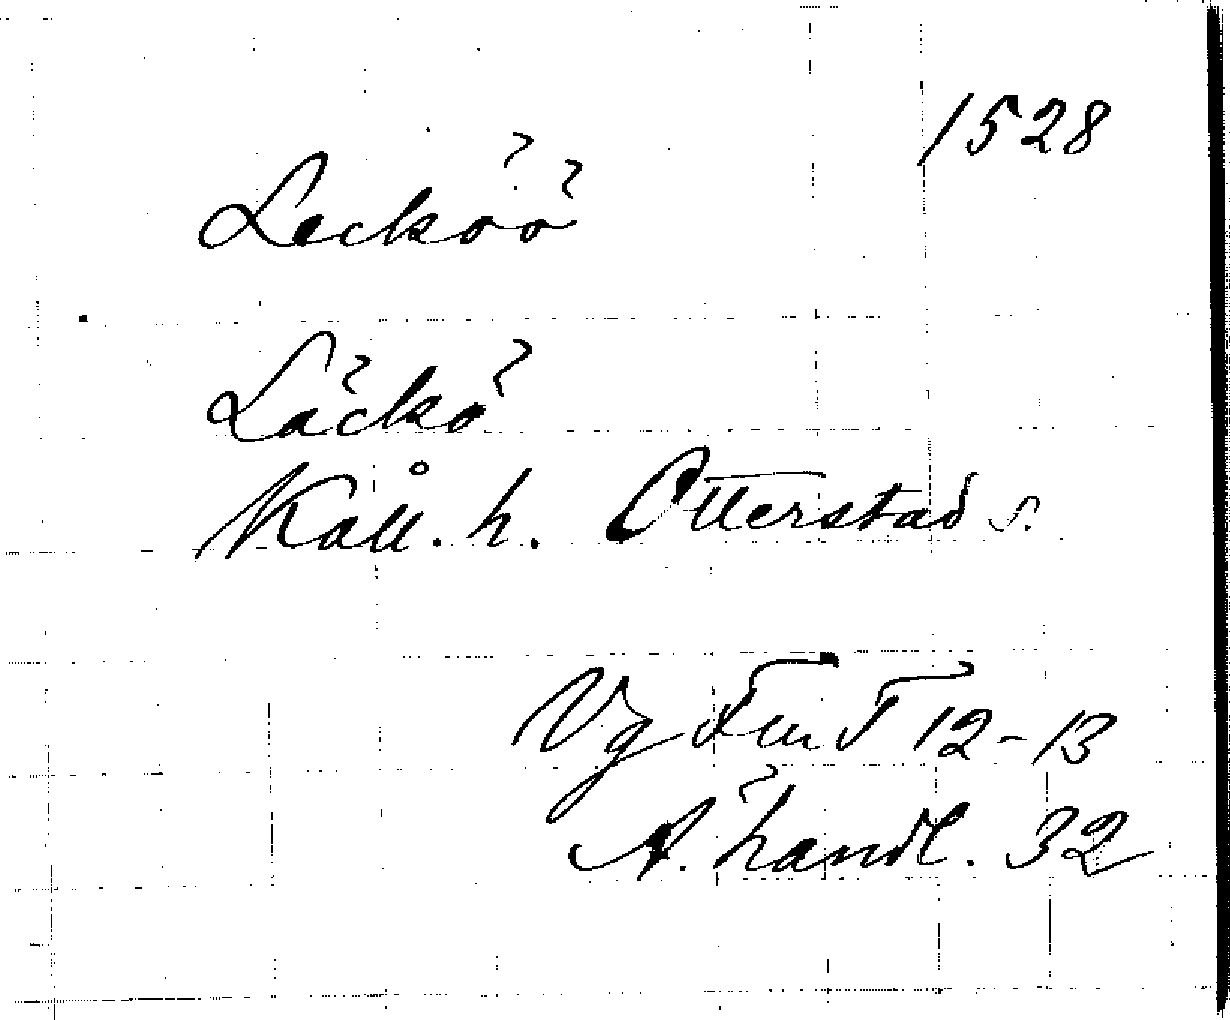 1528
Lecköö
Läckö
Kåll. h. Otterstad s.
Vg FmT 12-13
Ä. handl. 32